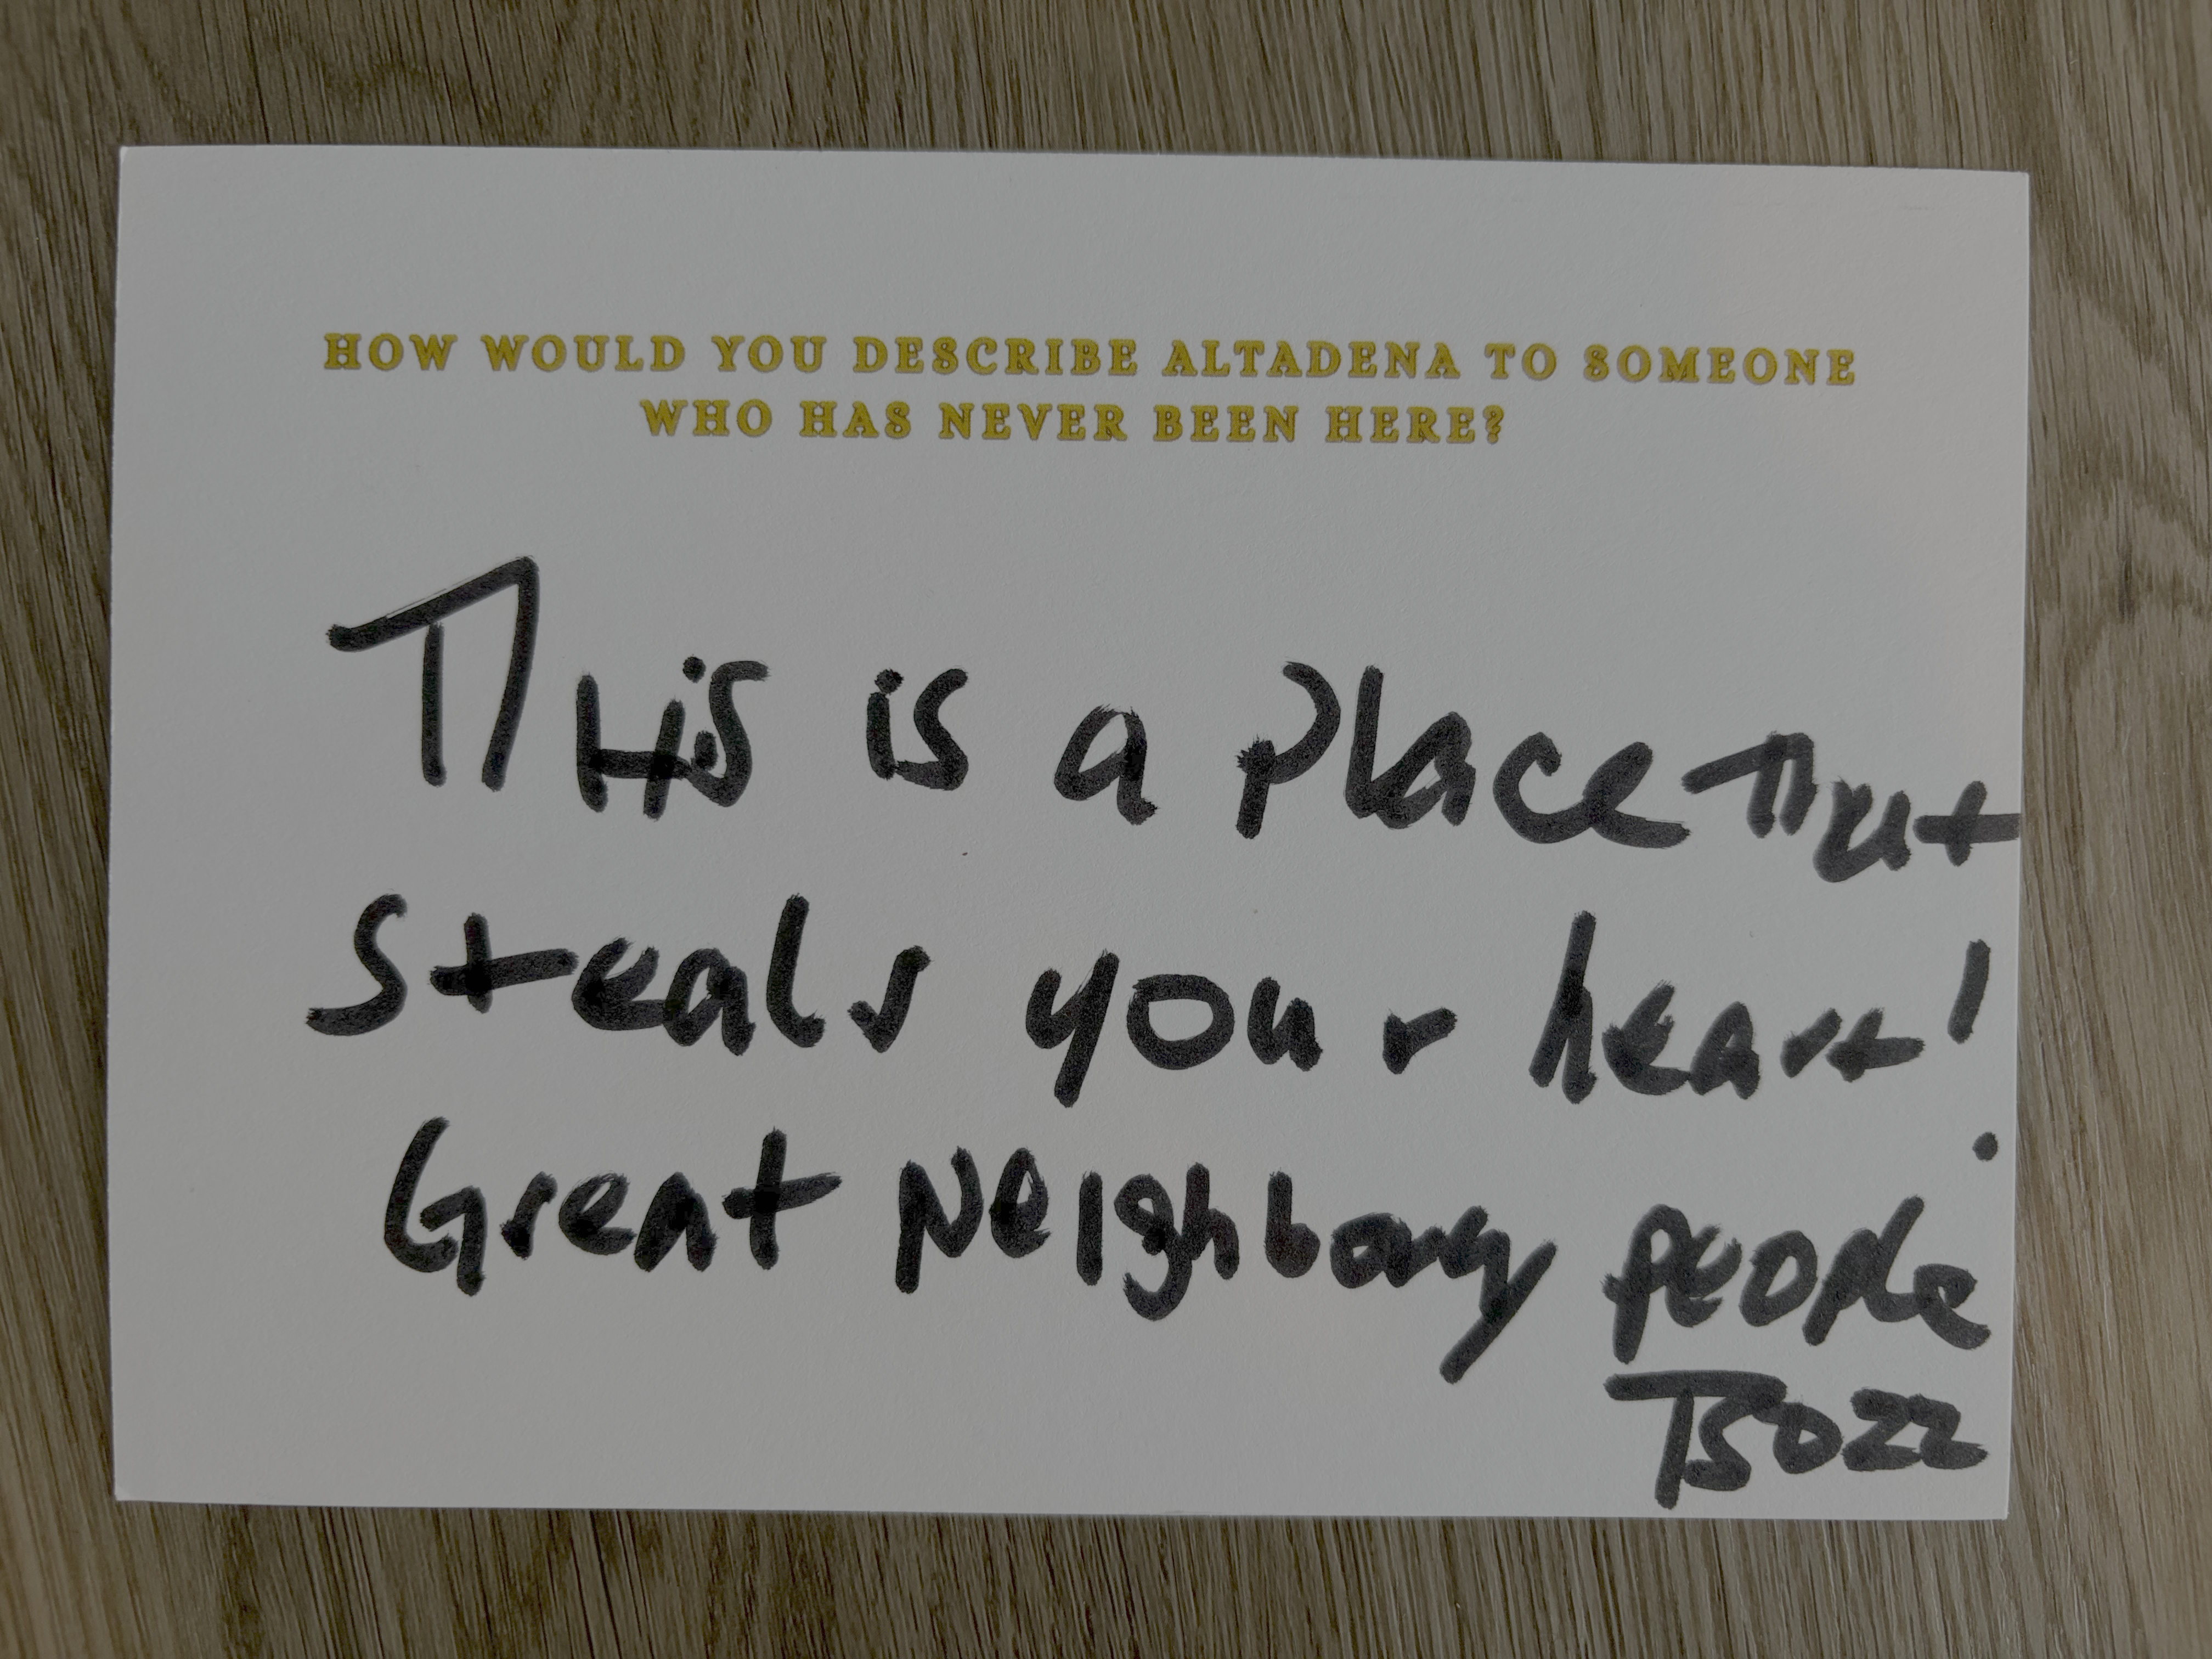 HOW WOULD YOU DESCRIBE ALTADENA TO SOMEONE
WHO HAS NEVER BEEN HERE?
THis is a place That
Steals your heart!
Great Neighborly people